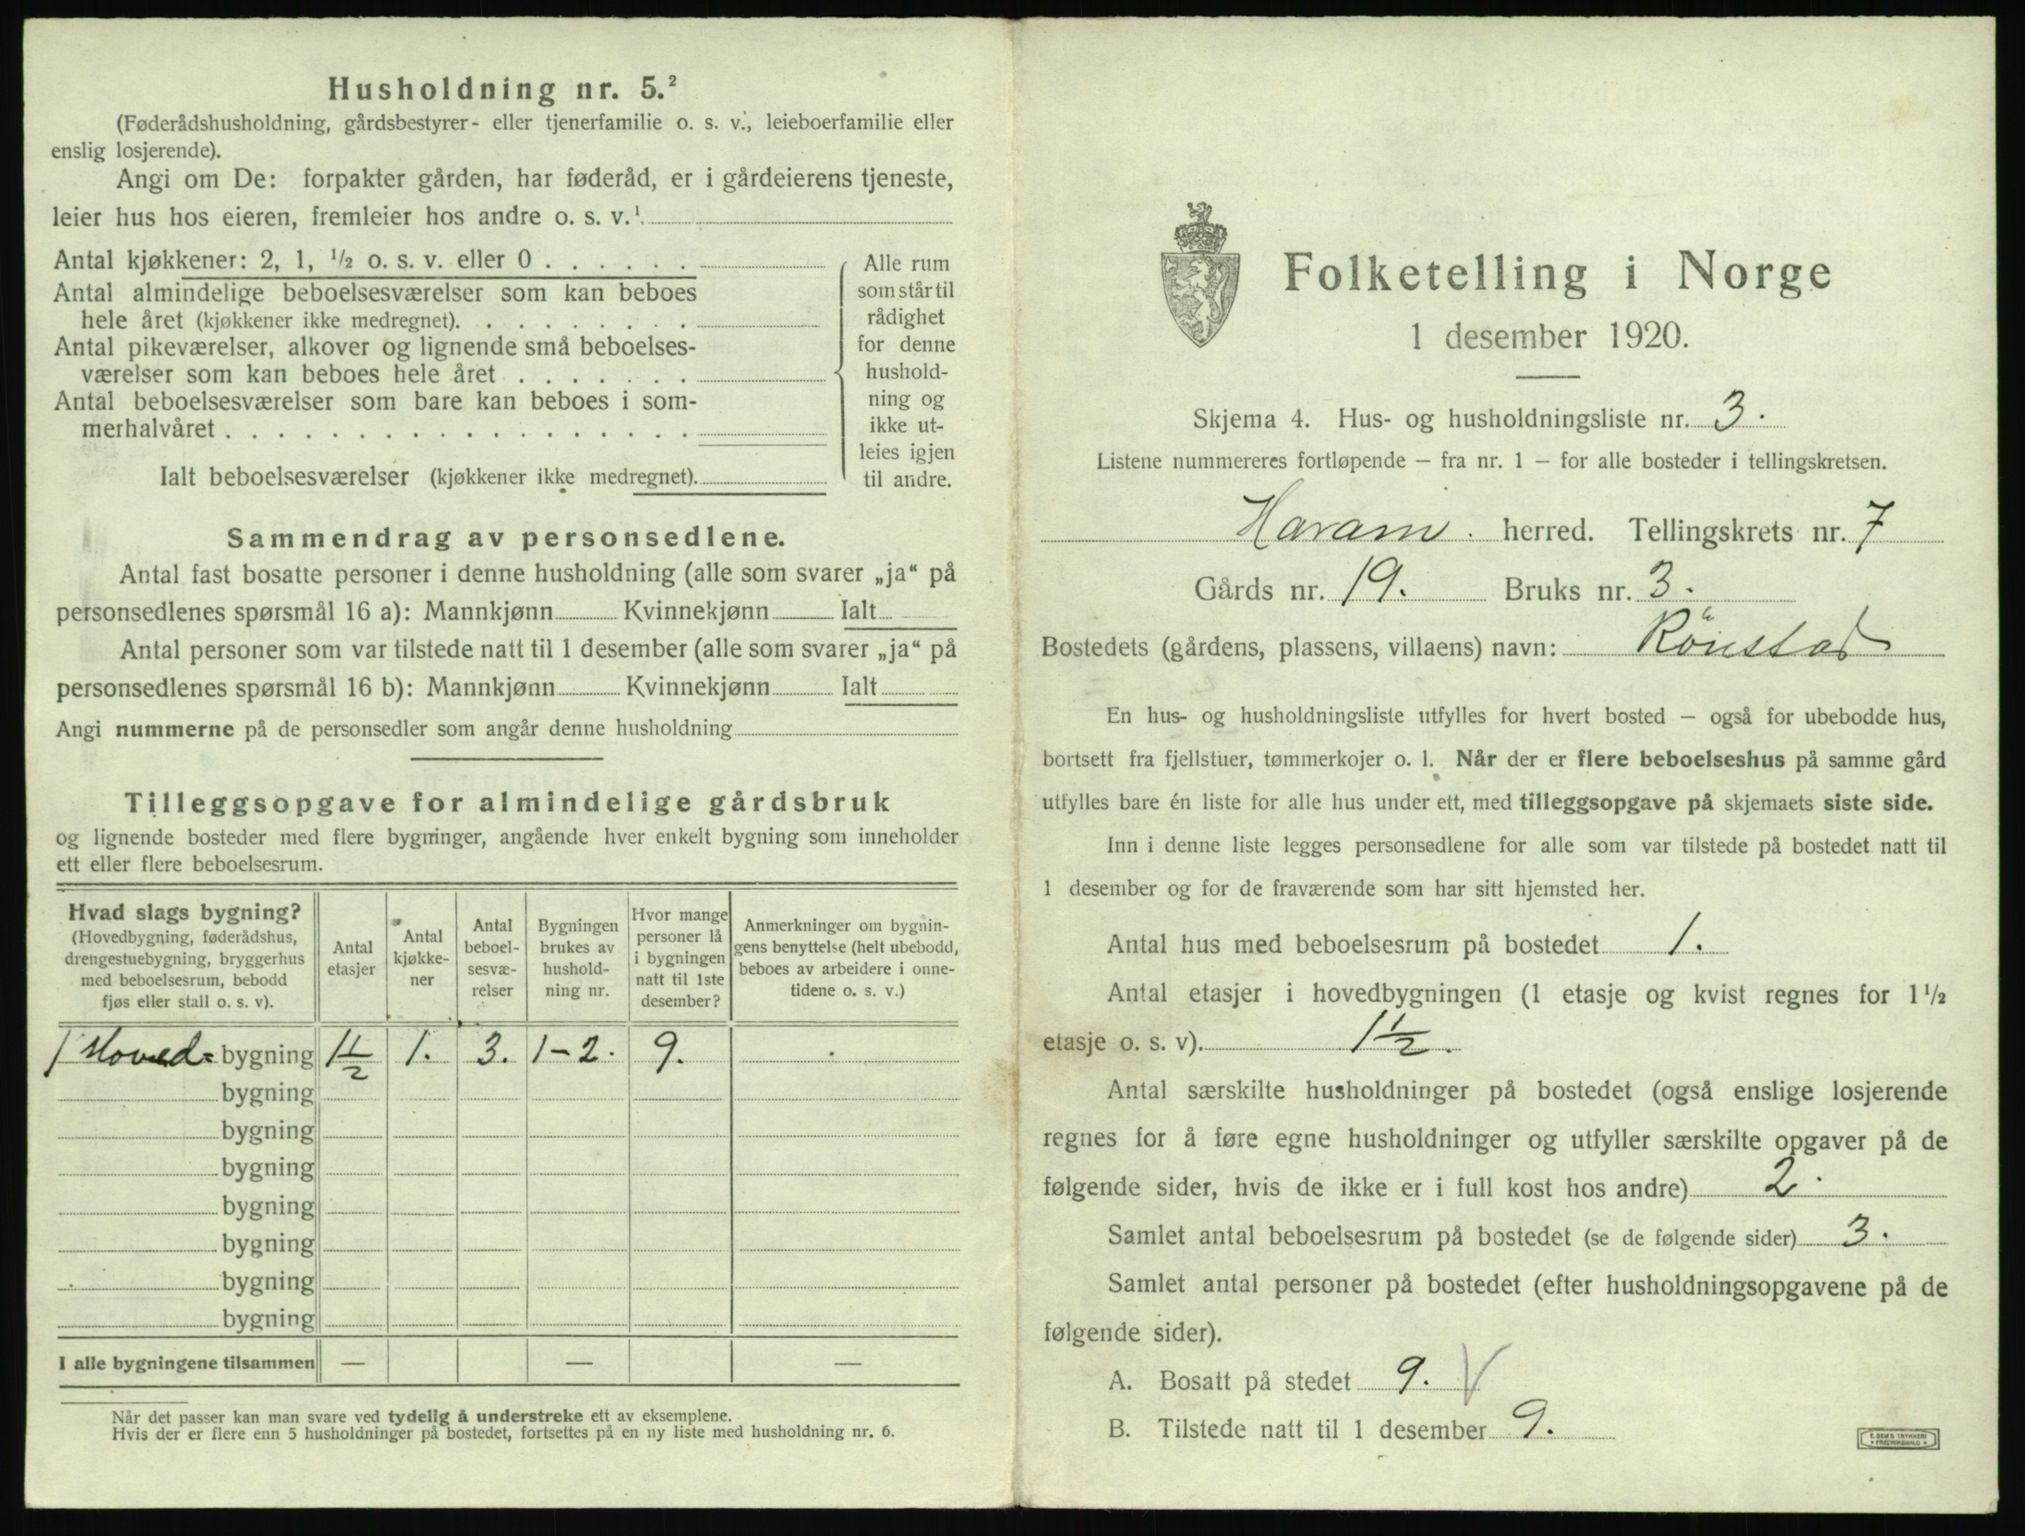 Husholdning nr. 5.²
(Føderådshusholdning, gårdsbestyrer- eller tjenerfamilie o. s. v., leieboerfamilie eller
enslig losjerende).
Angi om De: forpakter gården, har føderåd, er i gårdeierens tjeneste,
leier hus hos eieren, fremleier hos andre o. s. v.¹
Antal kjøkkener: 2, 1, ½ o. s. v. eller 0
Antal almindelige beboelsesværelser som kan beboes
hele året (kjøkkener ikke medregnet).
Antal pikeværelser, alkover og lignende små beboelses-
værelser som kan beboes hele året
Antal beboelsesværelser som bare kan beboes i som-
merhalvåret
Ialt beboelsesværelser (kjøkkener ikke medregnet).
Alle rum
som står til
rådighet
for denne
hushold-
ning og
ikke ut-
leies igjen
til andre.
Sammendrag av personsedlene.
Antal fast bosatte personer i denne husholdning (alle som svarer „ja“ på
personsedlenes spørsmål 16 a): Mannkjønn Kvinnekjønn Ialt
Antal personer som var tilstede natt til 1 desember (alle som svarer „ja“ på
personsedlenes spørsmål 16 b): Mannkjønn Kvinnekjønn Ialt
Angi nummerne på de personsedler som angår denne husholdning
Tilleggsopgave for almindelige gårdsbruk
og lignende bosteder med flere bygninger, angående hver enkelt bygning som inneholder
ett eller flere beboelsesrum.
Hvad slags bygning?
(Hovedbygning, føderådshus,
drengestuebygning, bryggerhus
med beboelsesrum, bebodd
fjøs eller stall o. s. v).
Antal
etasjer
Antal
kjøkke-
ner
Antal
beboel-
sesvæ-
relser
Bygningen
brukes av
hushold-
ning nr.
Hvor mange
personer lå
i bygningen
natt til 1ste
desember?
Anmerkninger om bygnin-
gens benyttelse (helt ubebodd,
beboes av arbeidere i onne-
tidene o. s. v.)
1 Hoved= bygning 1½ 1. 3. 1-2. 9.
bygning
bygning
bygning
bygning
bygning
bygning
bygning
I alle bygningene tilsammen — — —
Når det passer kan man svare ved tydelig å understreke ett av eksemplene.
Hvis der er flere enn 5 husholdninger på bostedet, fortsettes på en ny liste med husholdning nr. 6.
Folketelling i Norge
1 desember 1920.
Skjema 4. Hus- og husholdningsliste nr. 3.
Listene nummereres fortløpende – fra nr. 1 – for alle bosteder i tellingskretsen.
Haram. herred. Tellingskrets nr. 7
Gårds nr. 19. Bruks nr. 3.
Bostedets (gårdens, plassens, villaens) navn: Rönstad
En hus- og husholdningsliste utfylles for hvert bosted – også for ubebodde hus,
bortsett fra fjellstuer, tømmerkojer o. l. Når der er flere beboelseshus på samme gård
utfylles bare én liste for alle hus under ett, med tilleggsopgave på skjemaets siste side.
Inn i denne liste legges personsedlene for alle som var tilstede på bostedet natt til
1 desember og for de fraværende som har sitt hjemsted her.
Antal hus med beboelsesrum på bostedet 1.
Antal etasjer i hovedbygningen (1 etasje og kvist regnes for 1½
etasje o. s. v). 1½.
Antal særskilte husholdninger på bostedet (også enslige losjerende
regnes for å føre egne husholdninger og utfyller særskilte opgaver på de
følgende sider, hvis de ikke er i full kost hos andre) 2.
Samlet antal beboelsesrum på bostedet (se de følgende sider) 3.
Samlet antal personer på bostedet (efter husholdningsopgavene på de
følgende sider).
A. Bosatt på stedet 9. V
B. Tilstede natt til 1 desember 9.